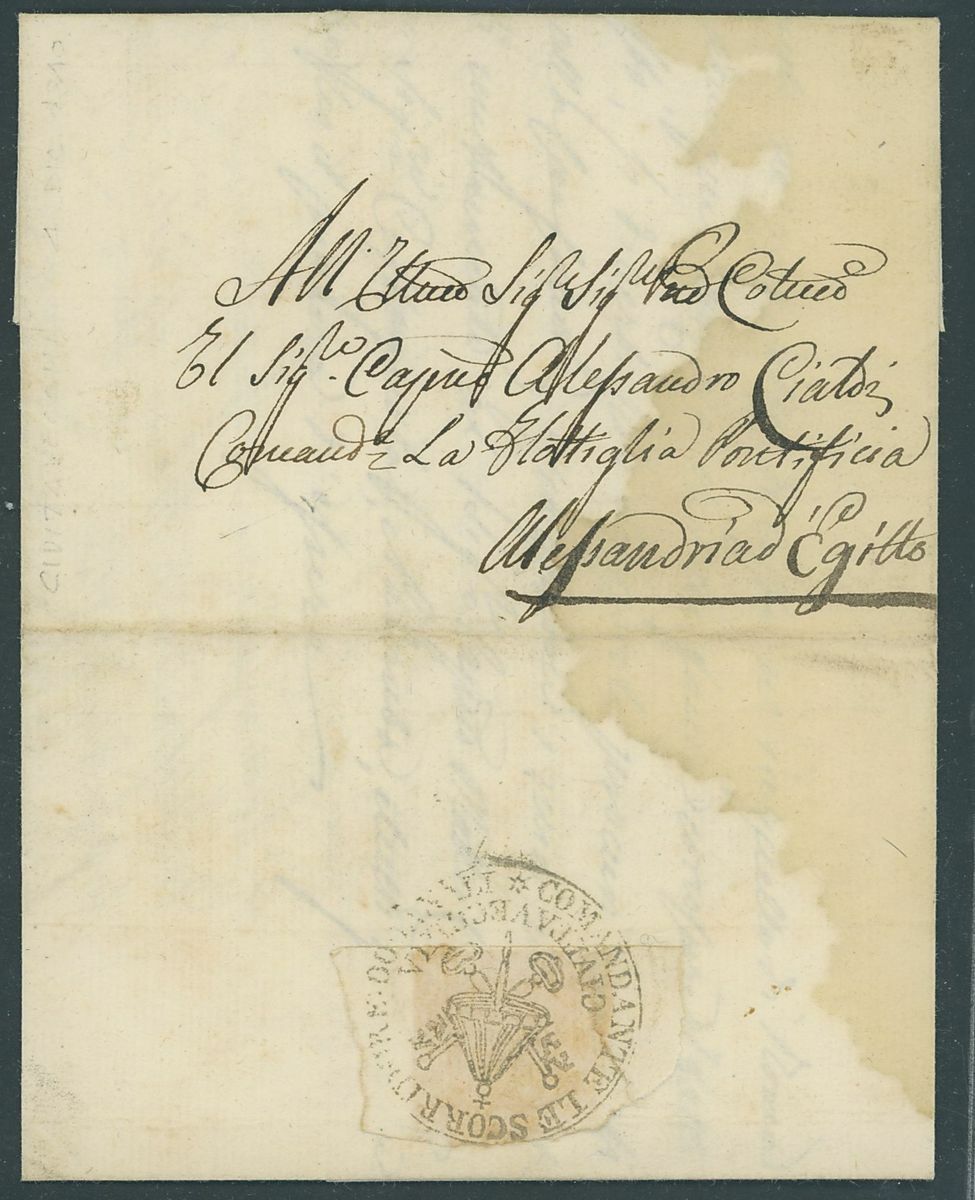 All' Illmo Sigr Sigr Pne Colmo
Il Sigr. Capno Alessandro Cialdi
Comande La Flottiglia Pontificia
Alessandria d'Egitto
COMANDANTE LE SCORRIDORE DOGANALI
CIVITAVECCHIA